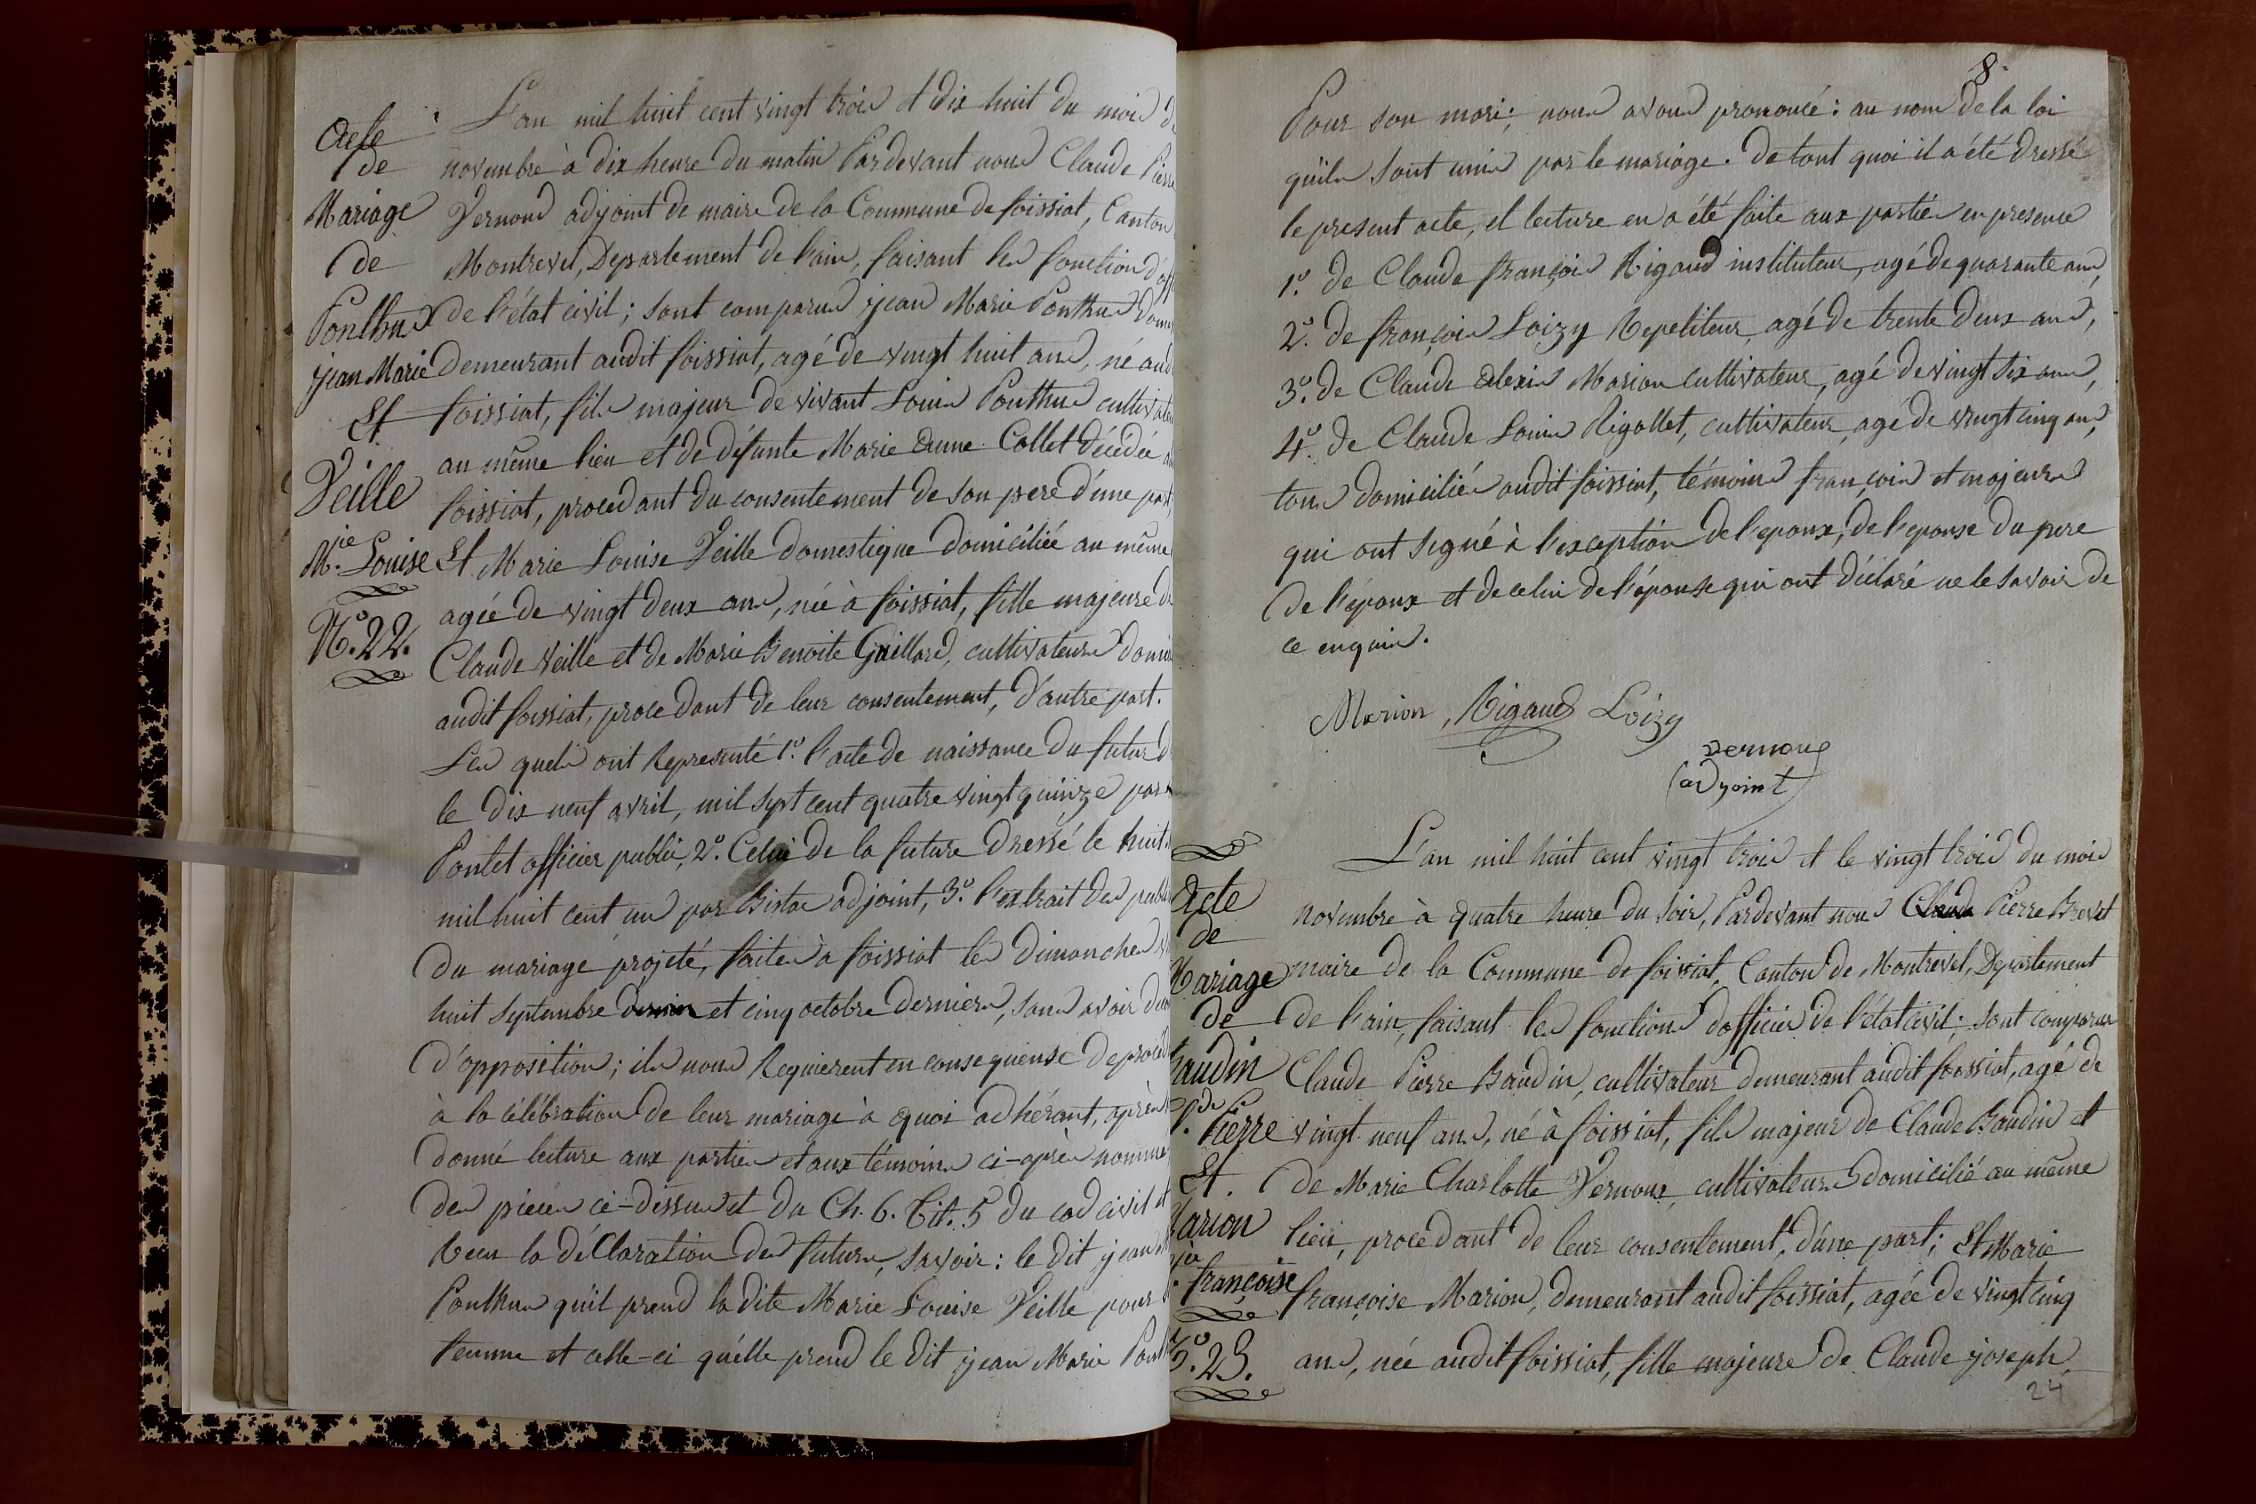 Acte
de
Mariage
de
Ponthus
jean Marie
Et
Veille
M.ie Louise
N.o 22.
L'an mil huit cent vingt trois et dix huit du mois d
novembre à dix heure du matin Pardevant nous Claude Pierre
Vernoud adjoint de maire de la Commune de foissiat, Canton
Montrevel, Departement de l'ain, faisant les fonctions d'off
de l'état civil; sont comparus jean Marie Ponthus Dom
Demeurant audit foissiat, agé de vingt huit ans, né aud
foissiat, fils majeur de vivant Louis Ponthus cultivateu
au même lieu et de défunte Marie Anne Collet décédée a
foissiat, procedant du consentement de son pere d'une part,
Et Marie Louise Veille domestique domiciliée au même
agée de vingt deux ans, née à foissiat, fille majeure d
Claude Veille et de Marie Benoite Gaillard, cultivateurs domi
audit foissiat, procedant de leur consentement, d'autre part.
Les quels ont Representé 1.o l'acte de naissance du futur d
le dix neuf avril, mil sept cent quatre vingt quinze par
Pontet officier public, 2.o Celui de la future dressé le huit
mil huit cent un par adjoint, 3.o l'extrait des publi
du mariage projeté, faites à foissiat les Dimanches v
huit Septembre et cinq octobre derniers, sans avoir
d'opposition; ils nous Requierent en consequense de procéd
à la célébration de leur mariage à quoi adhérant, après
donné lecture aux parties et aux témoins ci-après nommé
des pièces ci-dessus et du Ch. 6. Tit. 5 du cod civil et
Recu la déClaration des futurs, savoir: le dit jean
Ponthus qu'il prend la dite Marie Louise Veille pour
femme et celle-ci qu'elle prend le dit jean Marie Ponth
8.
Pour son mari; nous avons prononcé: au nom de la loi
qu'ils sont unis par le mariage. De tout quoi il a été dressé
le present acte, et lecture en a été faite aux parties en presence
1.o de Claude françois Rigaud instituteur, agé de quarante ans,
2.o de françois Loizy Repetiteur, agé de trente deux ans,
3.o de Claude Alexis Marion cultivateur, agé de vingt six ans,
4.o de Claude Louis Rigollet, cultivateur, agé de vingt cinq ans,
tous domiciliés audit foissiat, témoins françois et majeurs
qui ont signé à l'exception de l'epoux, de l'epouse du pere
de l'époux et de celui de l'épouse qui ont déclaré ne le savoir de
ce enquis.
Marion Rigaud Loizy
vernoud
adjoint
Acte
de
Mariage
de
Baudin
C.de Pierre
Et.
Marion
M.ie françoise
N.o 23.
L'an mil huit cent vingt trois et le vingt trois du mois
novembre à quatre heure du soir, Pardevant nous Claude Pierre Brevet
maire de la Commune de foissiat, Canton de Montrevel, Departement
de l'ain, faisant les fonctions d'officier de l'état civil; sont comparus
Claude Pierre Baudin, cultivateur demeurant audit foissiat, agé de
vingt neuf ans, né à foissiat, fils majeur de Claude Baudin et
de Marie Charlotte Vernoux, cultivateurs domicilié au même
lieu, procedant de leur consentement, d'une part; Et Marie
françoise Marion, demeurant audit foissiat, agée de vingt cinq
ans, née audit foissiat, fille majeure de Claude joseph
24